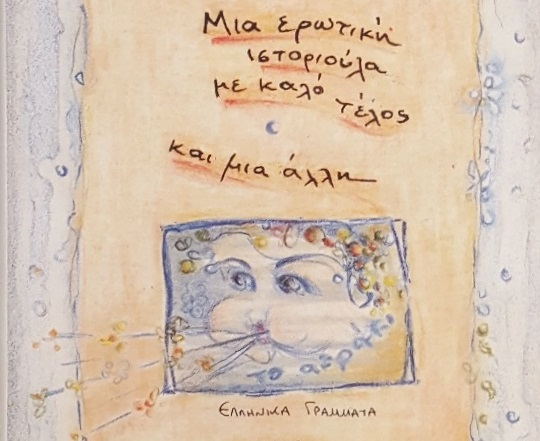 Μια ερωτική
ιστοριούλα
με καλό
τέλος
και μια άλλη
το αεράκι
Ελληνικά Γράμματα